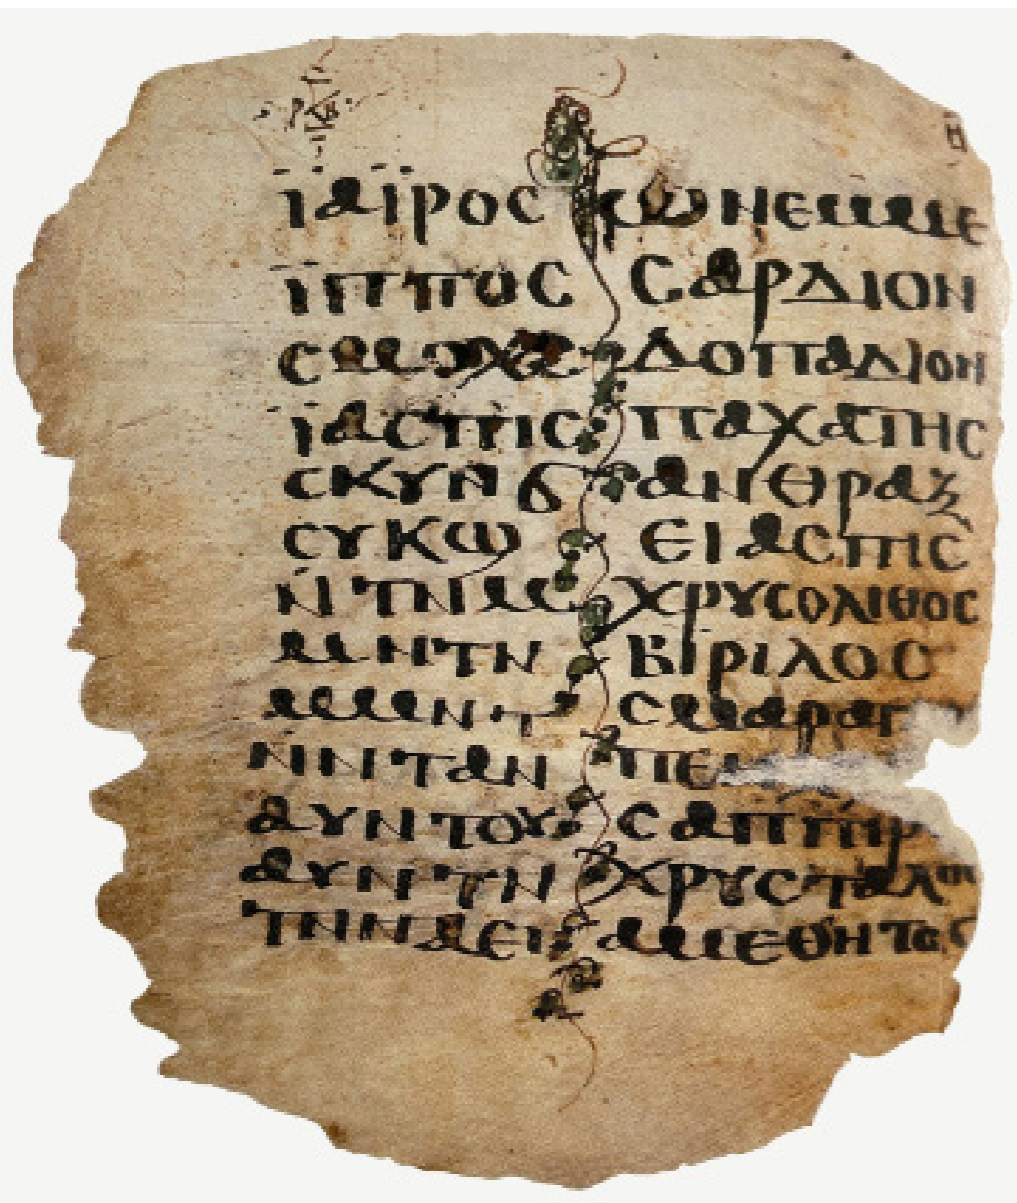 ⲓ̈ⲁⲓ̈ⲣⲟⲥ
ⲓ̈ⲡⲡⲟⲥ
ⲓ̈ⲁⲥⲡⲓⲥ
ⲥⲕⲩⲛϭ
ⲥⲩⲕⲱ
ⲛⲧⲛⲙ
ⲙⲏⲧⲛ
ⲙⲙⲛⲧ
ⲛⲛⲧⲁⲛ
ⲁⲩⲛⲧⲟⲩ
ⲁⲩⲛⲧⲛ
ⲧⲛⲛⲁⲉⲓ
ⲱⲛⲉⲙⲙⲉ
ⲥⲁⲣⲇⲓⲟⲛ
ⲇⲟⲡⲁⲇⲓⲟⲛ
ⲡⲁⲭⲁⲧⲏⲥ
ⲁⲛⲑⲣⲁⲝ
ⲉⲓⲁⲥⲡⲓⲥ
ⲭⲣⲩⲥⲟⲗⲓⲑⲟⲥ
ⲃⲓⲣⲓⲗⲟⲥ
ⲥⲙⲁⲣⲁⲅ
ⲡⲉ
ⲥⲁⲡⲡⲏⲣ
ⲭⲣⲩⲥⲧⲁⲗ
ⲁⲙⲉⲑⲏⲧⲟⲥ